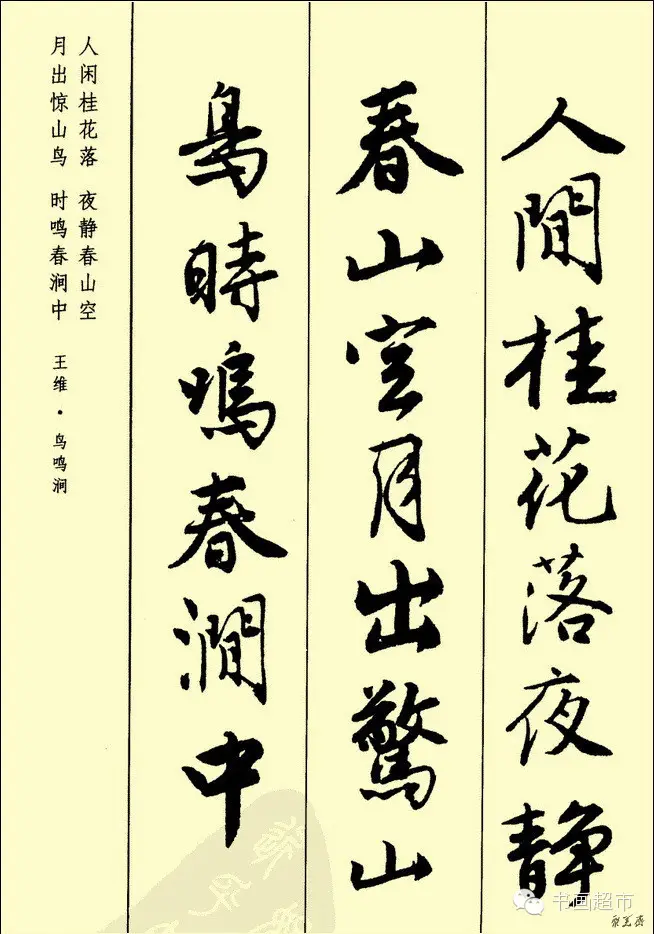 人間桂花落夜静
春山空月出驚山
鳥時鳴春澗中
人闲桂花落 夜静春山空
月出惊山鸟 时鸣春涧中 王维·鸟鸣涧
书画超市